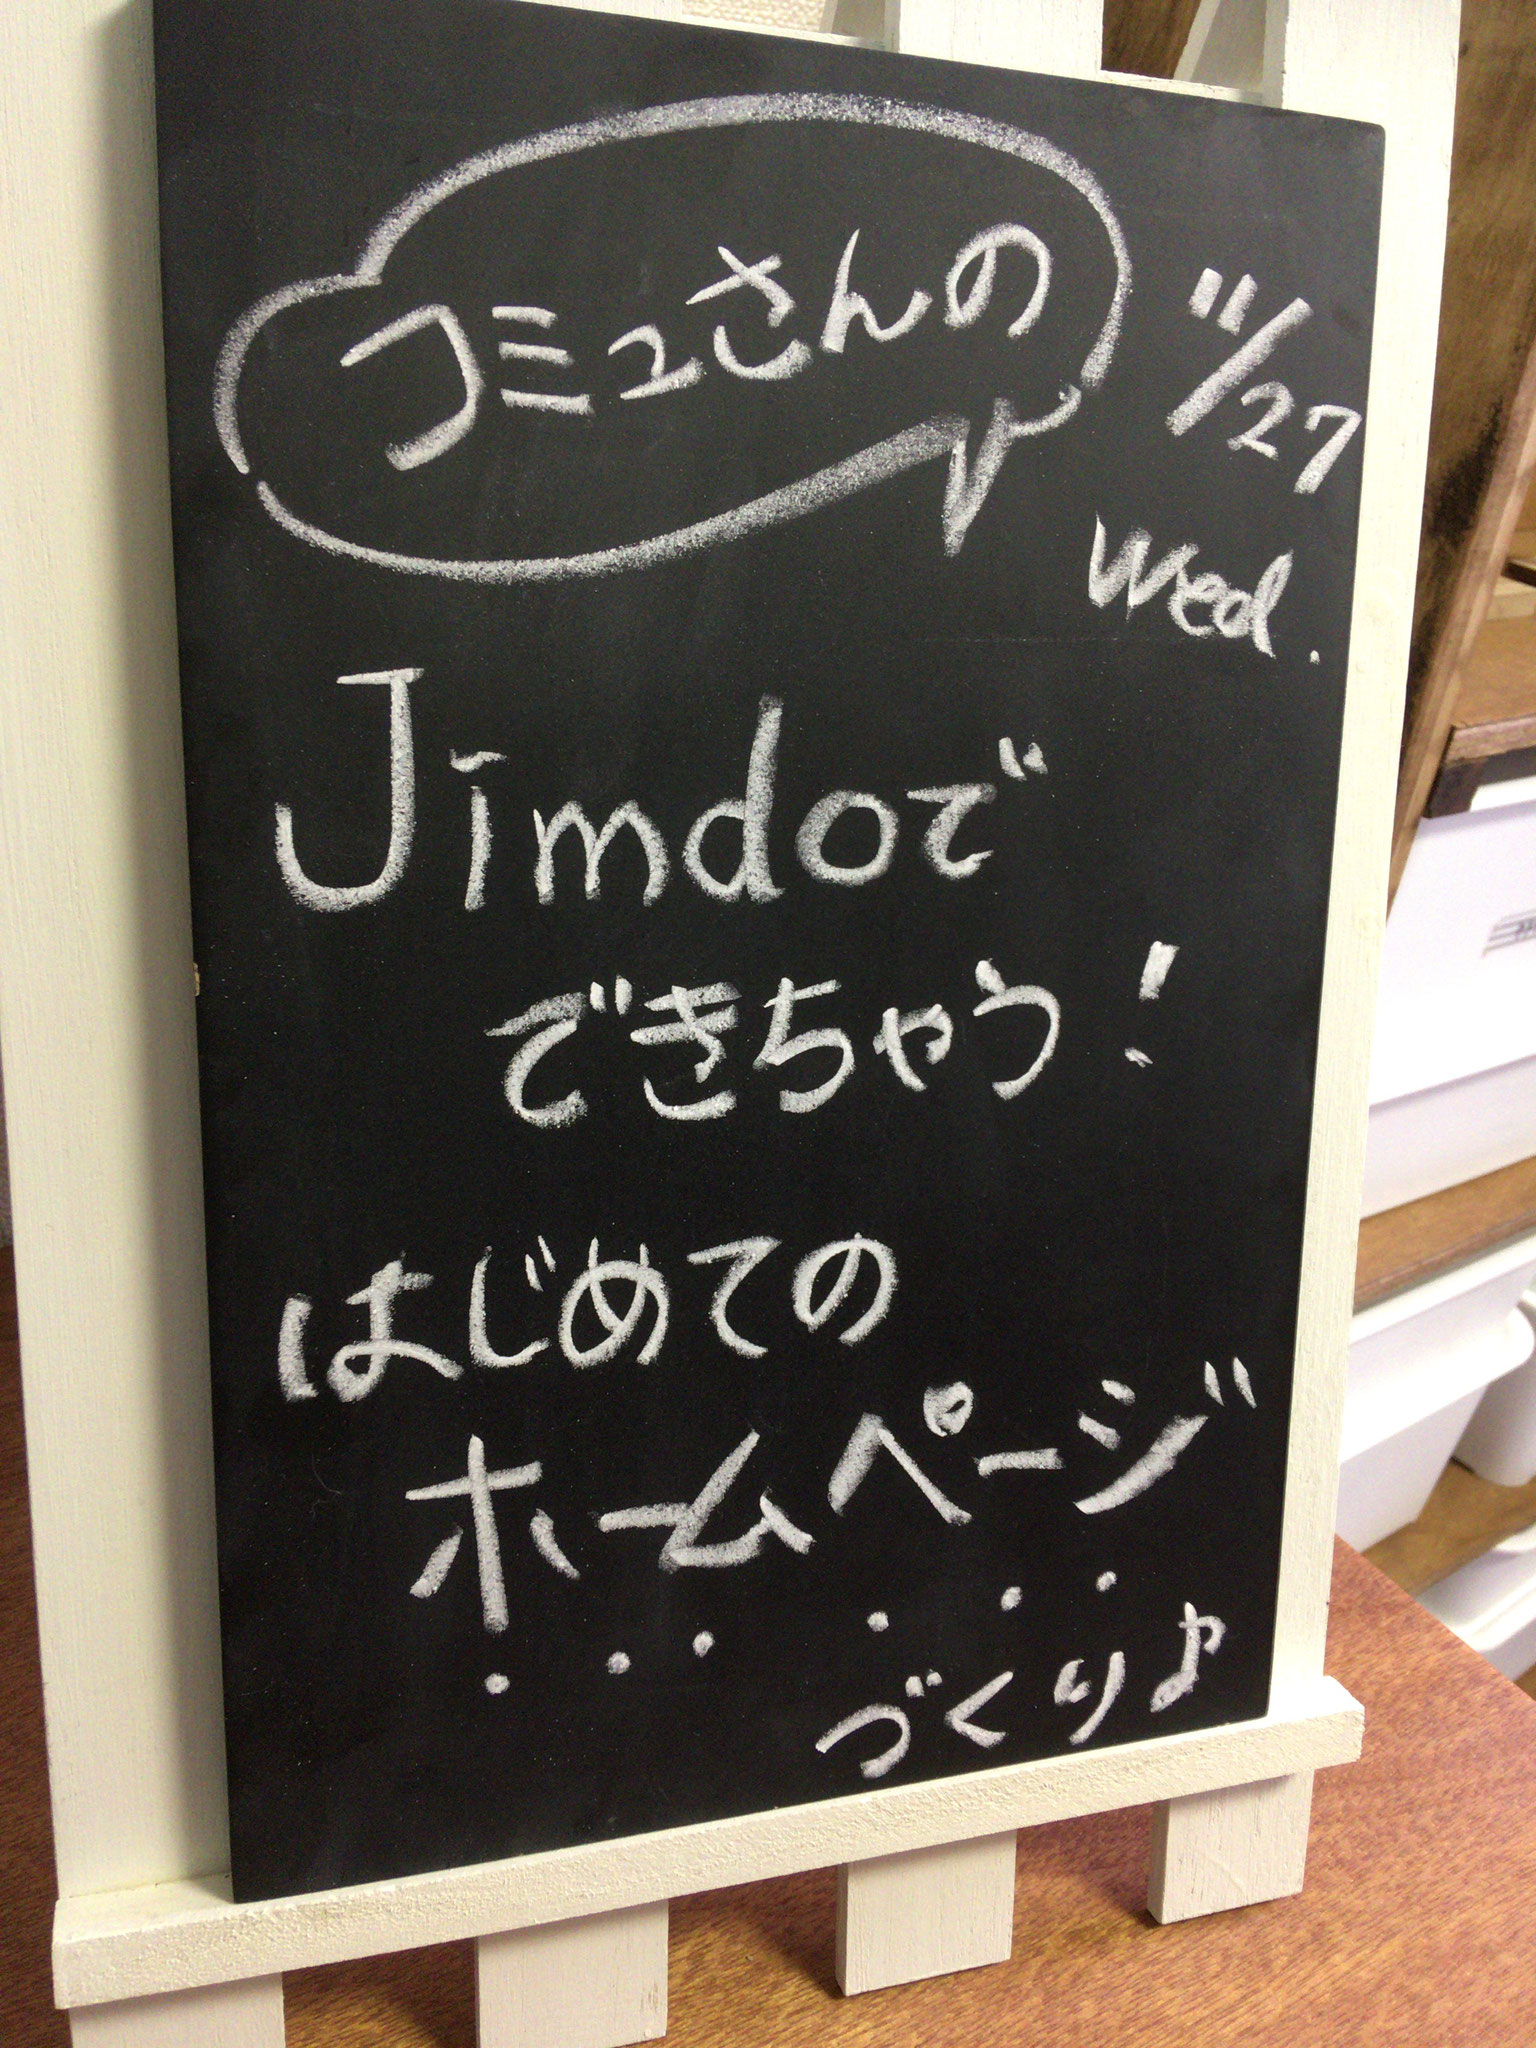 コミュさんの
11/27
Wed.
Jimdoで
できちゃう!
はじめての
ホームページ
づくり♪